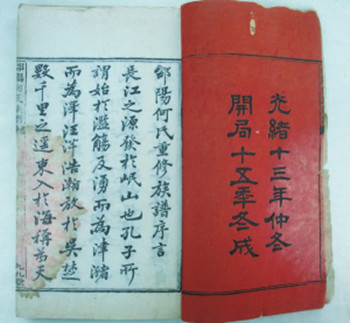 光緒十三年仲冬
開局十五年冬成
邵陽何氏重修族譜序言
長江之源發於岷山也孔子所
謂始於濫觴及湧而為津瀦
而為澤汪洋浩瀚放於吳楚
數千里之遥東入於海稱為天